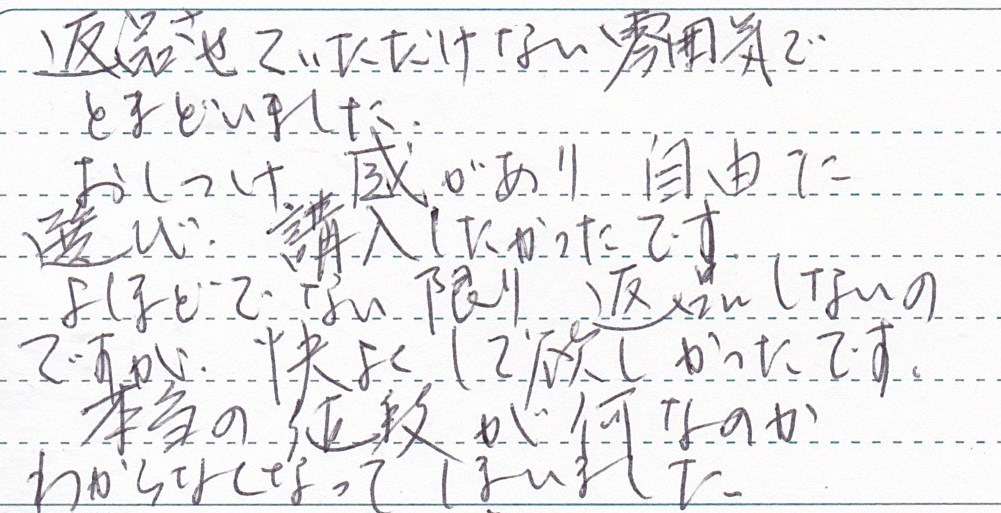 返品させていただけない雰囲気で
とまどいました.
おしつけ 感があり 自由に
選び. 講入したかったです.
よほどでない限り 返品しないの
ですが. 快よくして欲しかったです.
本当の 値段が何なのか
わからなくなってしまいました.